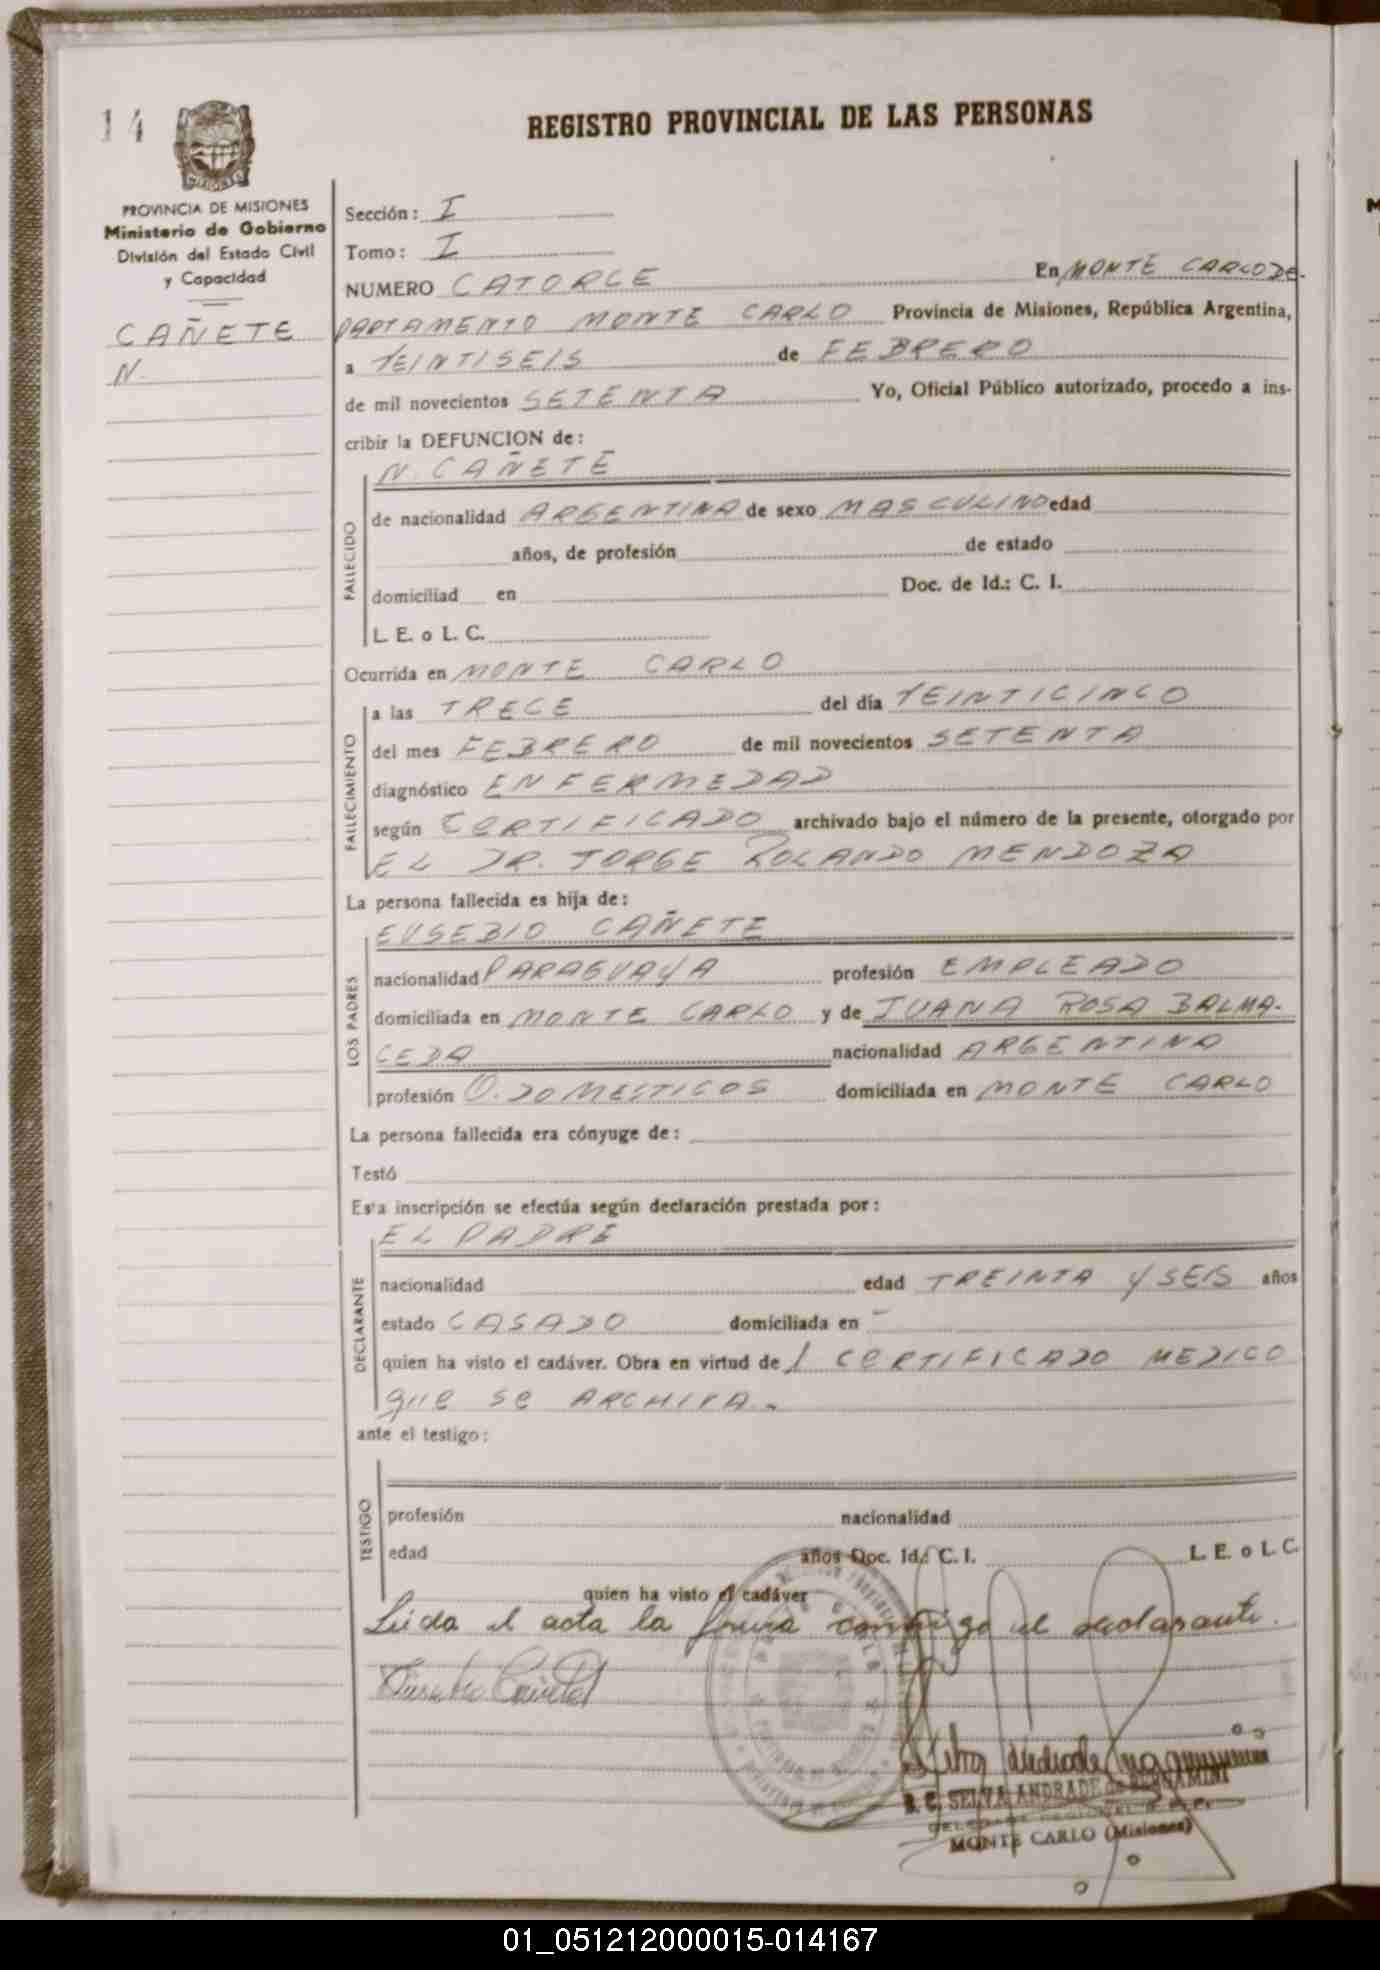 14
REGISTRO PROVINCIAL DE LAS PERSONAS
MISIONES
PROVINCIA DE MISIONES
Ministerio de Gobierno
División del Estado Civil
y Capacidad
CAÑETE
N.
Sección: I
Tomo: I
NUMERO CATORCE En MONTE CARLO DE-
PARTAMENTO MONTE CARLO Provincia de Misiones, República Argentina,
a VEINTISEIS de FEBRERO
de mil novecientos SETENTA Yo, Oficial Público autorizado, procedo a ins-
cribir la DEFUNCION de:
N. CAÑETE
FALLECIDO
de nacionalidad ARGENTINA de sexo MASCULINO edad
años, de profesión de estado
domiciliad en Doc. de Id.: C. I.
L. E. o L. C.
Ocurrida en MONTE CARLO
FALLECIMIENTO
a las TRECE del día VEINTICINCO
del mes FEBRERO de mil novecientos SETENTA
diagnóstico ENFERMEDAD
según CERTIFICADO archivado bajo el número de la presente, otorgado por
EL DR. JORGE ROLANDO MENDOZA
La persona fallecida es hija de:
EUSEBIO CAÑETE
LOS PADRES
nacionalidad PARAGUAYA profesión EMPLEADO
domiciliada en MONTE CARLO y de JUANA ROSA BALMA-
CEDA nacionalidad ARGENTINA
profesión Q. DOMESTICOS domiciliada en MONTE CARLO
La persona fallecida era cónyuge de:
Testó
Esta inscripción se efectúa según declaración prestada por:
EL PADRE
DECLARANTE
nacionalidad edad TREINTA Y SEIS años
estado CASADO domiciliada en -
quien ha visto el cadáver. Obra en virtud de 1 CERTIFICADO MEDICO
que se ARCHIVA.-
ante el testigo:
TESTIGO
profesión nacionalidad
edad años Doc. Id.: C. I. L. E. o L. C.
quien ha visto el cadáver
Leida el acta la firma conmigo el declarante.
SELVA ANDRADE de BERGAMINI
MONTE CARLO (Misiones)
01_051212000015-014167